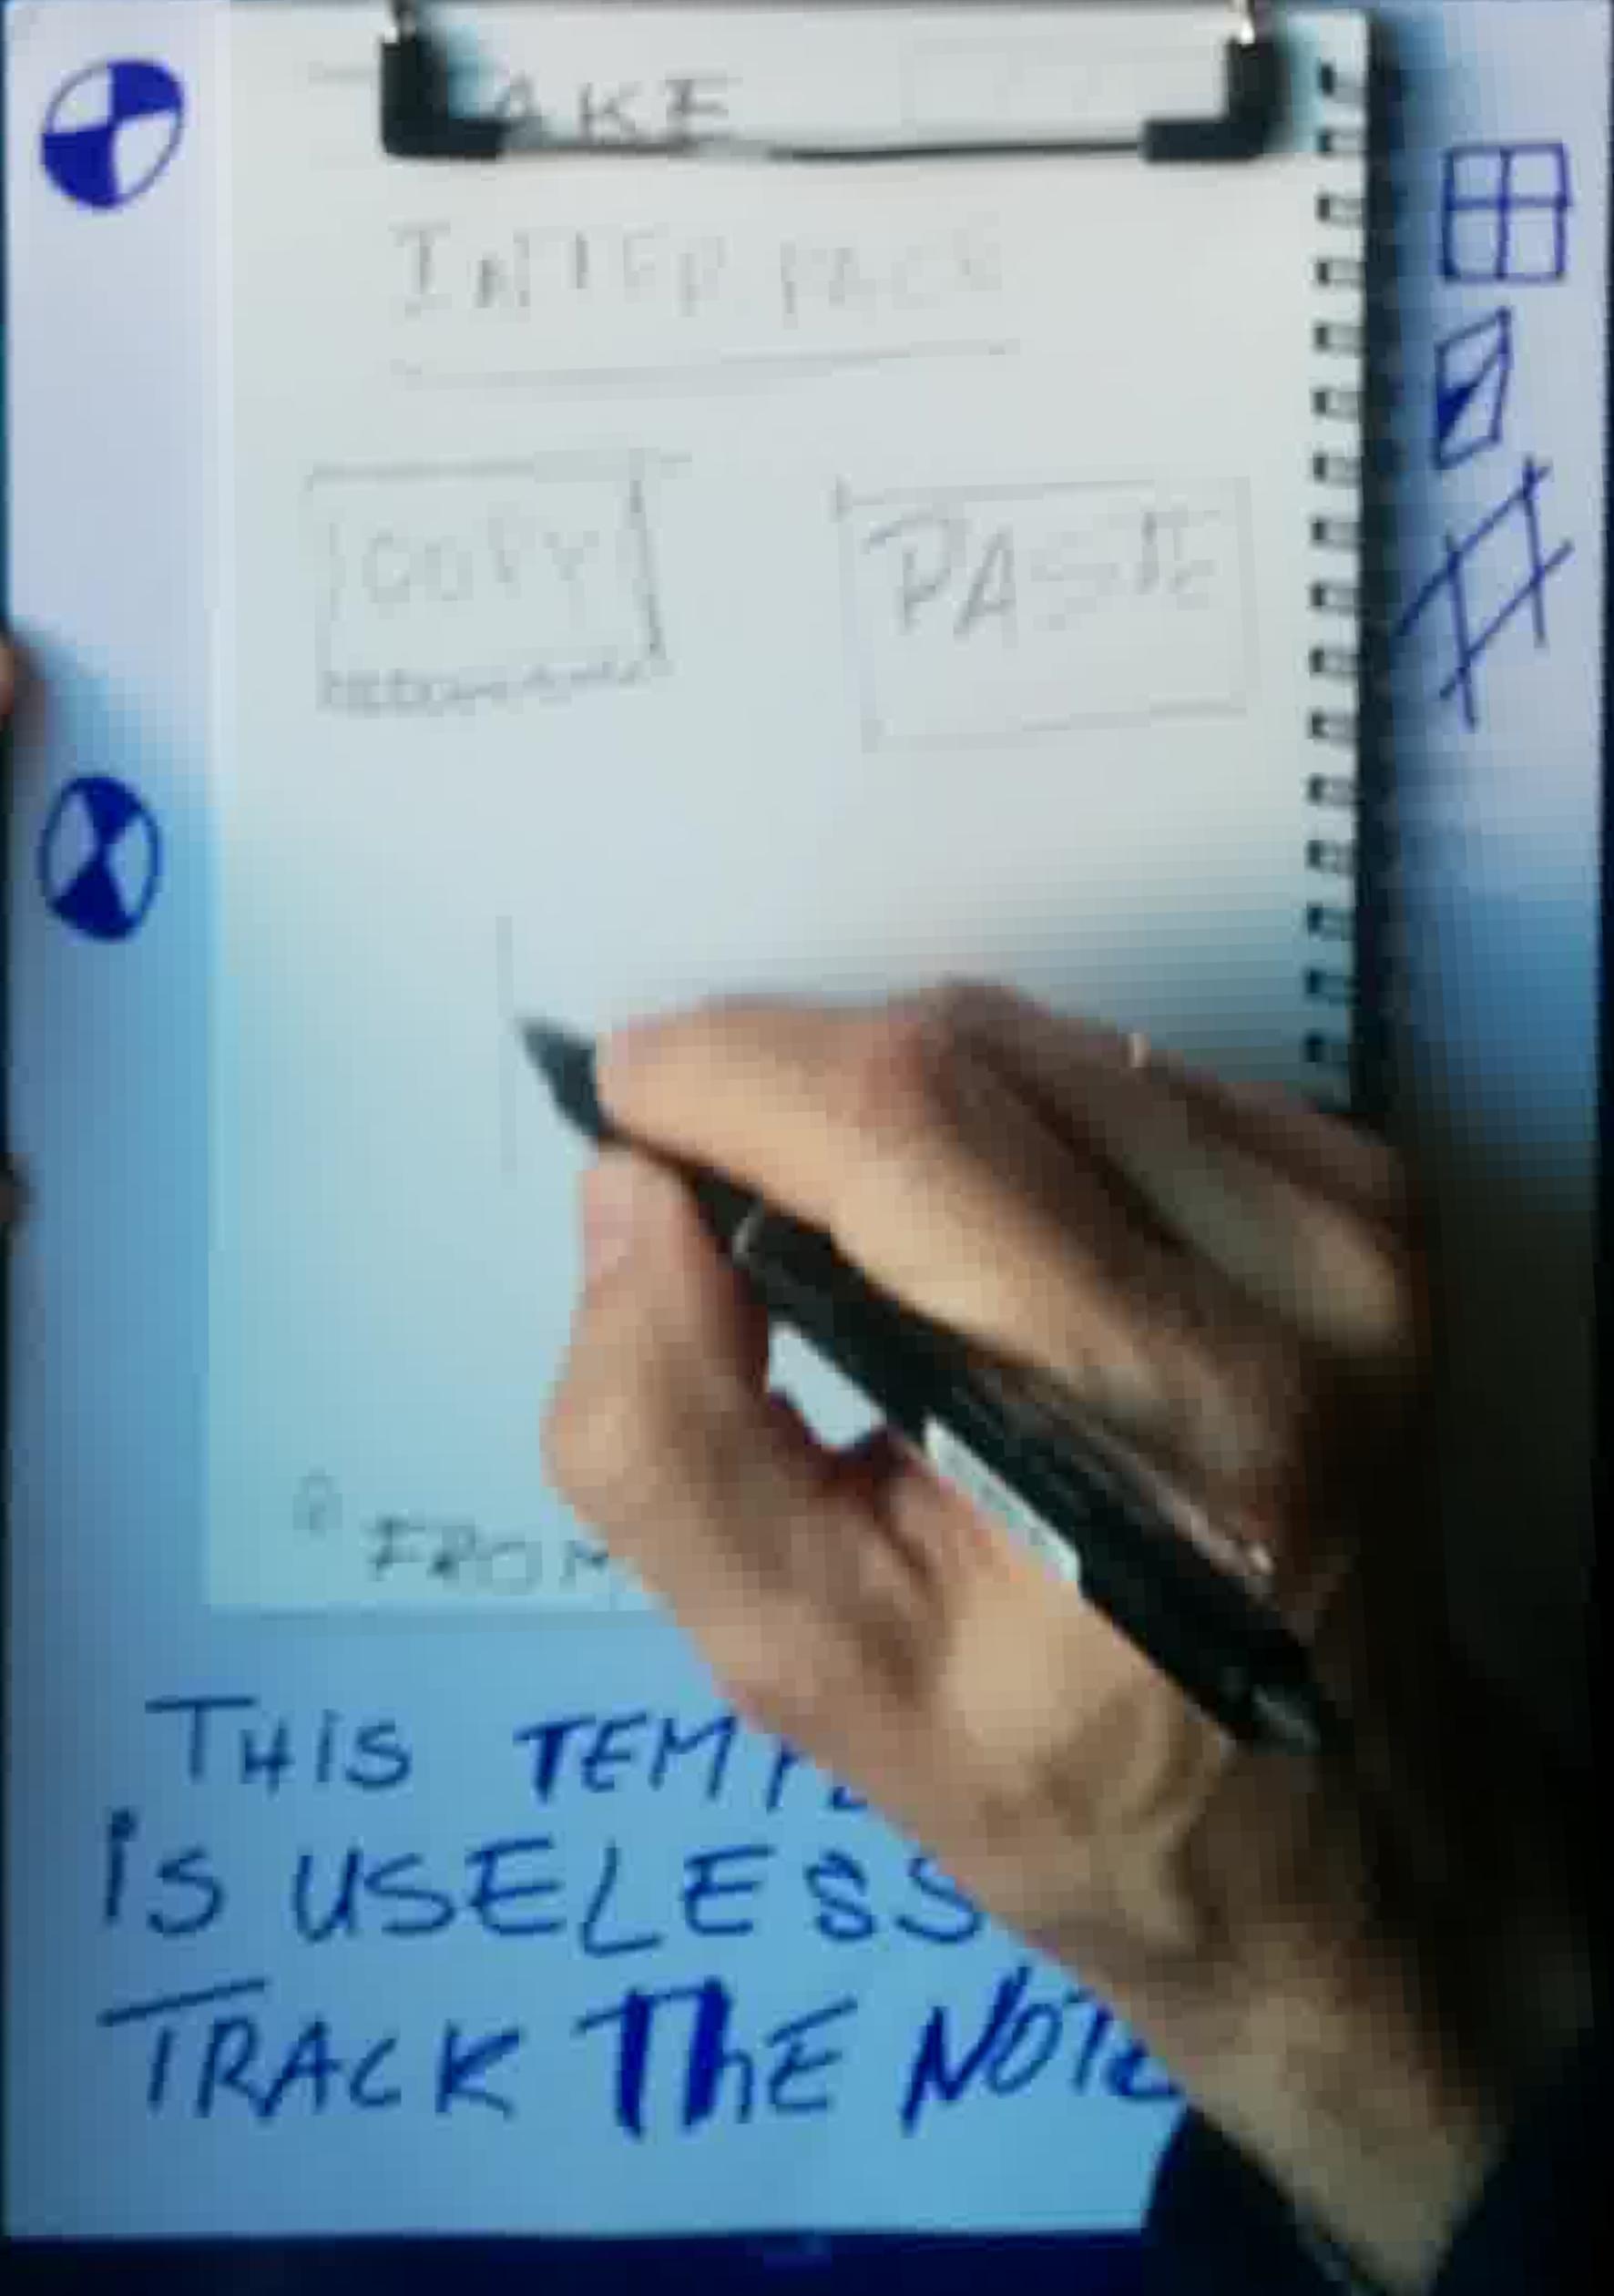 INTERFACE
COPY
PASTE
FROM
THIS
IS USELESS
TRACK THE NOTE